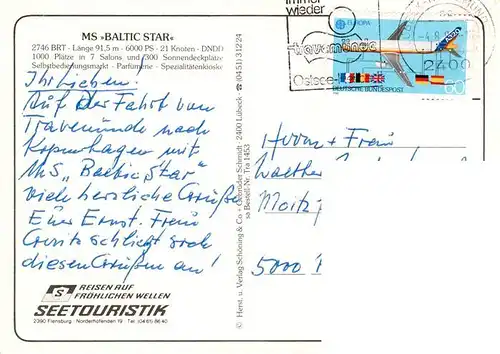 MS »BALTIC STAR«
2746 BRT - Länge 91,5 m - 6000 PS - 21 Knoten - DNDD
1000 Plätze in 7 Salons und 300 Sonnendeckplätze
Selbstbedienungsmarkt - Parfümerie - Spezialitätenkiosk
Ihr Lieben!
Auf der Fahrt von
Travemünde nach
Kopenhagen mit
MS „Baltic Star“
viele herzliche Grüße
Euer Ernst. Frau
schließt sich
diesen Grüßen an!
S REISEN AUF
FRÖHLICHEN WELLEN
SEETOURISTIK
2390 Flensburg · Norderhofenden 19 · Tel. (0461) 8640
© Herst. u. Verlag Schöning & Co + Gebrüder Schmidt · 2400 Lübeck · ☎ (0451) 31224
sa Bestell-Nr. Tra 1453
immer
wieder
travemünde
Ostsee
EUROPA
-4.8.
2400
DEUTSCHE BUNDESPOST
60
Herrn + Frau
Walther
5000